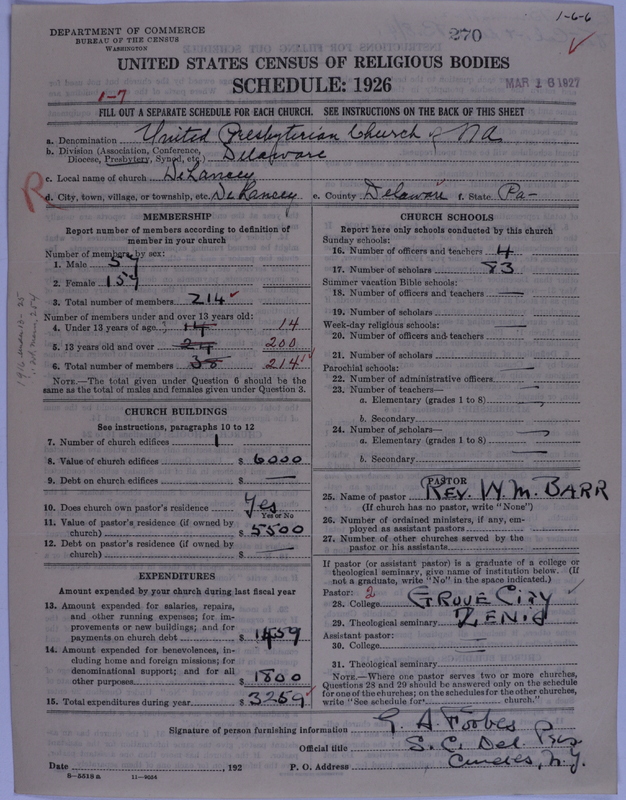 1-6-6
DEPARTMENT OF COMMERCE
BUREAU OF THE CENSUS
WASHINGTON
270
UNITED STATES CENSUS OF RELIGIOUS BODIES
SCHEDULE: 1926
MAR 16 1927
1-7
FILL OUT A SEPARATE SCHEDULE FOR EACH CHURCH. SEE INSTRUCTIONS ON THE BACK OF THIS SHEET
a. Denomination United Presbyterian Church of NA
b. Division (Association, Conference, Diocese, Presbytery, Synod, etc.) Delaware
c. Local name of church DeLancey
R
d. City, town, village, or township, etc. DeLancey e. County Delaware f. State Pa-
MEMBERSHIP
Report number of members according to definition of
member in your church
Number of members by sex:
1. Male 57
2. Female 157
3. Total number of members 214
Number of members under and over 13 years old:
4. Under 13 years of age 14 14
5. 13 years old and over 200
6. Total number of members 38 214
NOTE.—The total given under Question 6 should be the
same as the total of males and females given under Question 3.
CHURCH BUILDINGS
See instructions, paragraphs 10 to 12
7. Number of church edifices 1
8. Value of church edifices $ 6000
9. Debt on church edifices $ —
10. Does church own pastor's residence Yes
Yes or No
11. Value of pastor's residence (if owned by
church) $ 5500
12. Debt on pastor's residence (if owned by
church) $ —
EXPENDITURES
Amount expended by your church during last fiscal year
13. Amount expended for salaries, repairs,
and other running expenses; for im-
provements or new buildings; and for
payments on church debt $ 1459
14. Amount expended for benevolences, in-
cluding home and foreign missions; for
denominational support; and for all
other purposes $ 1800
15. Total expenditures during year $ 3259
CHURCH SCHOOLS
Report here only schools conducted by this church
Sunday schools:
16. Number of officers and teachers 4
17. Number of scholars 83
Summer vacation Bible schools:
18. Number of officers and teachers —
19. Number of scholars —
Week-day religious schools:
20. Number of officers and teachers —
21. Number of scholars —
Parochial schools:
22. Number of administrative officers —
23. Number of teachers—
a. Elementary (grades 1 to 8) —
b. Secondary —
24. Number of scholars—
a. Elementary (grades 1 to 8) —
b. Secondary —
PASTOR
25. Name of pastor REV. W. M. BARR
(If church has no pastor, write "None")
26. Number of ordained ministers, if any, em-
ployed as assistant pastors —
27. Number of other churches served by the
pastor or his assistants —
If pastor (or assistant pastor) is a graduate of a college or
theological seminary, give name of institution below. (If
not a graduate, write "No" in the space indicated.)
Pastor: 2
28. College GROVE CITY
29. Theological seminary ZENIA
Assistant pastor:
30. College —
31. Theological seminary —
NOTE.—Where one pastor serves two or more churches,
Questions 28 and 29 should be answered only on the schedule
for one of the churches; on the schedules for the other churches,
write "See schedule for church."
Signature of person furnishing information G. A. Forbes
Official title S. C. Del. Pres
Date , 192 P. O. Address N.Y.
8-5518 a 11-9034